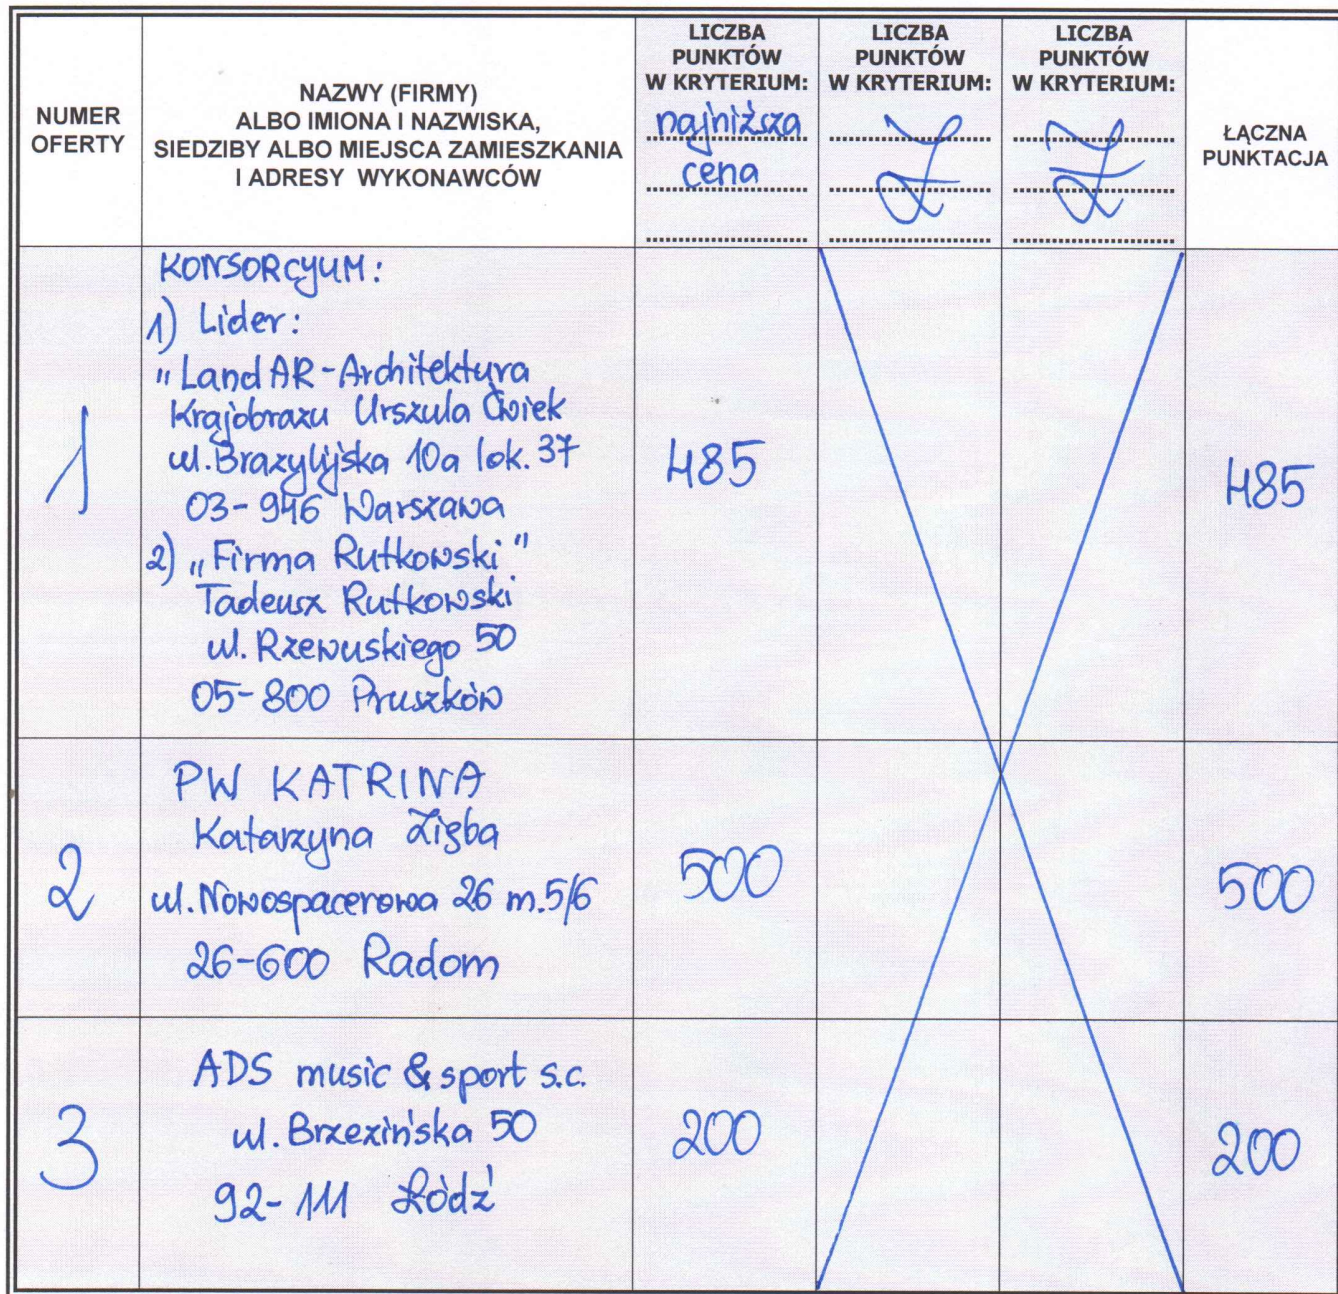 NUMER
OFERTY
NAZWY (FIRMY)
ALBO IMIONA I NAZWISKA,
SIEDZIBY ALBO MIEJSCA ZAMIESZKANIA
I ADRESY WYKONAWCÓW
LICZBA
PUNKTÓW
W KRYTERIUM:
najniższa
cena
LICZBA
PUNKTÓW
W KRYTERIUM:
LICZBA
PUNKTÓW
W KRYTERIUM:
ŁĄCZNA
PUNKTACJA
1
KONSORCJUM:
1) Lider:
„LandAR-Architektura
Krajobrazu Urszula Ćwiek
ul. Brazylijska 10a lok. 37
03-946 Warszawa
2) „Firma Rutkowski"
Tadeusz Rutkowski
ul. Rzewuskiego 50
05-800 Pruszków
485
485
2
PW KATRINA
Katarzyna Zięba
ul. Nowospacerowa 26 m. 5/6
26-600 Radom
500
500
3
ADS music & sport s.c.
ul. Brzezińska 50
92-111 Łódź
200
200